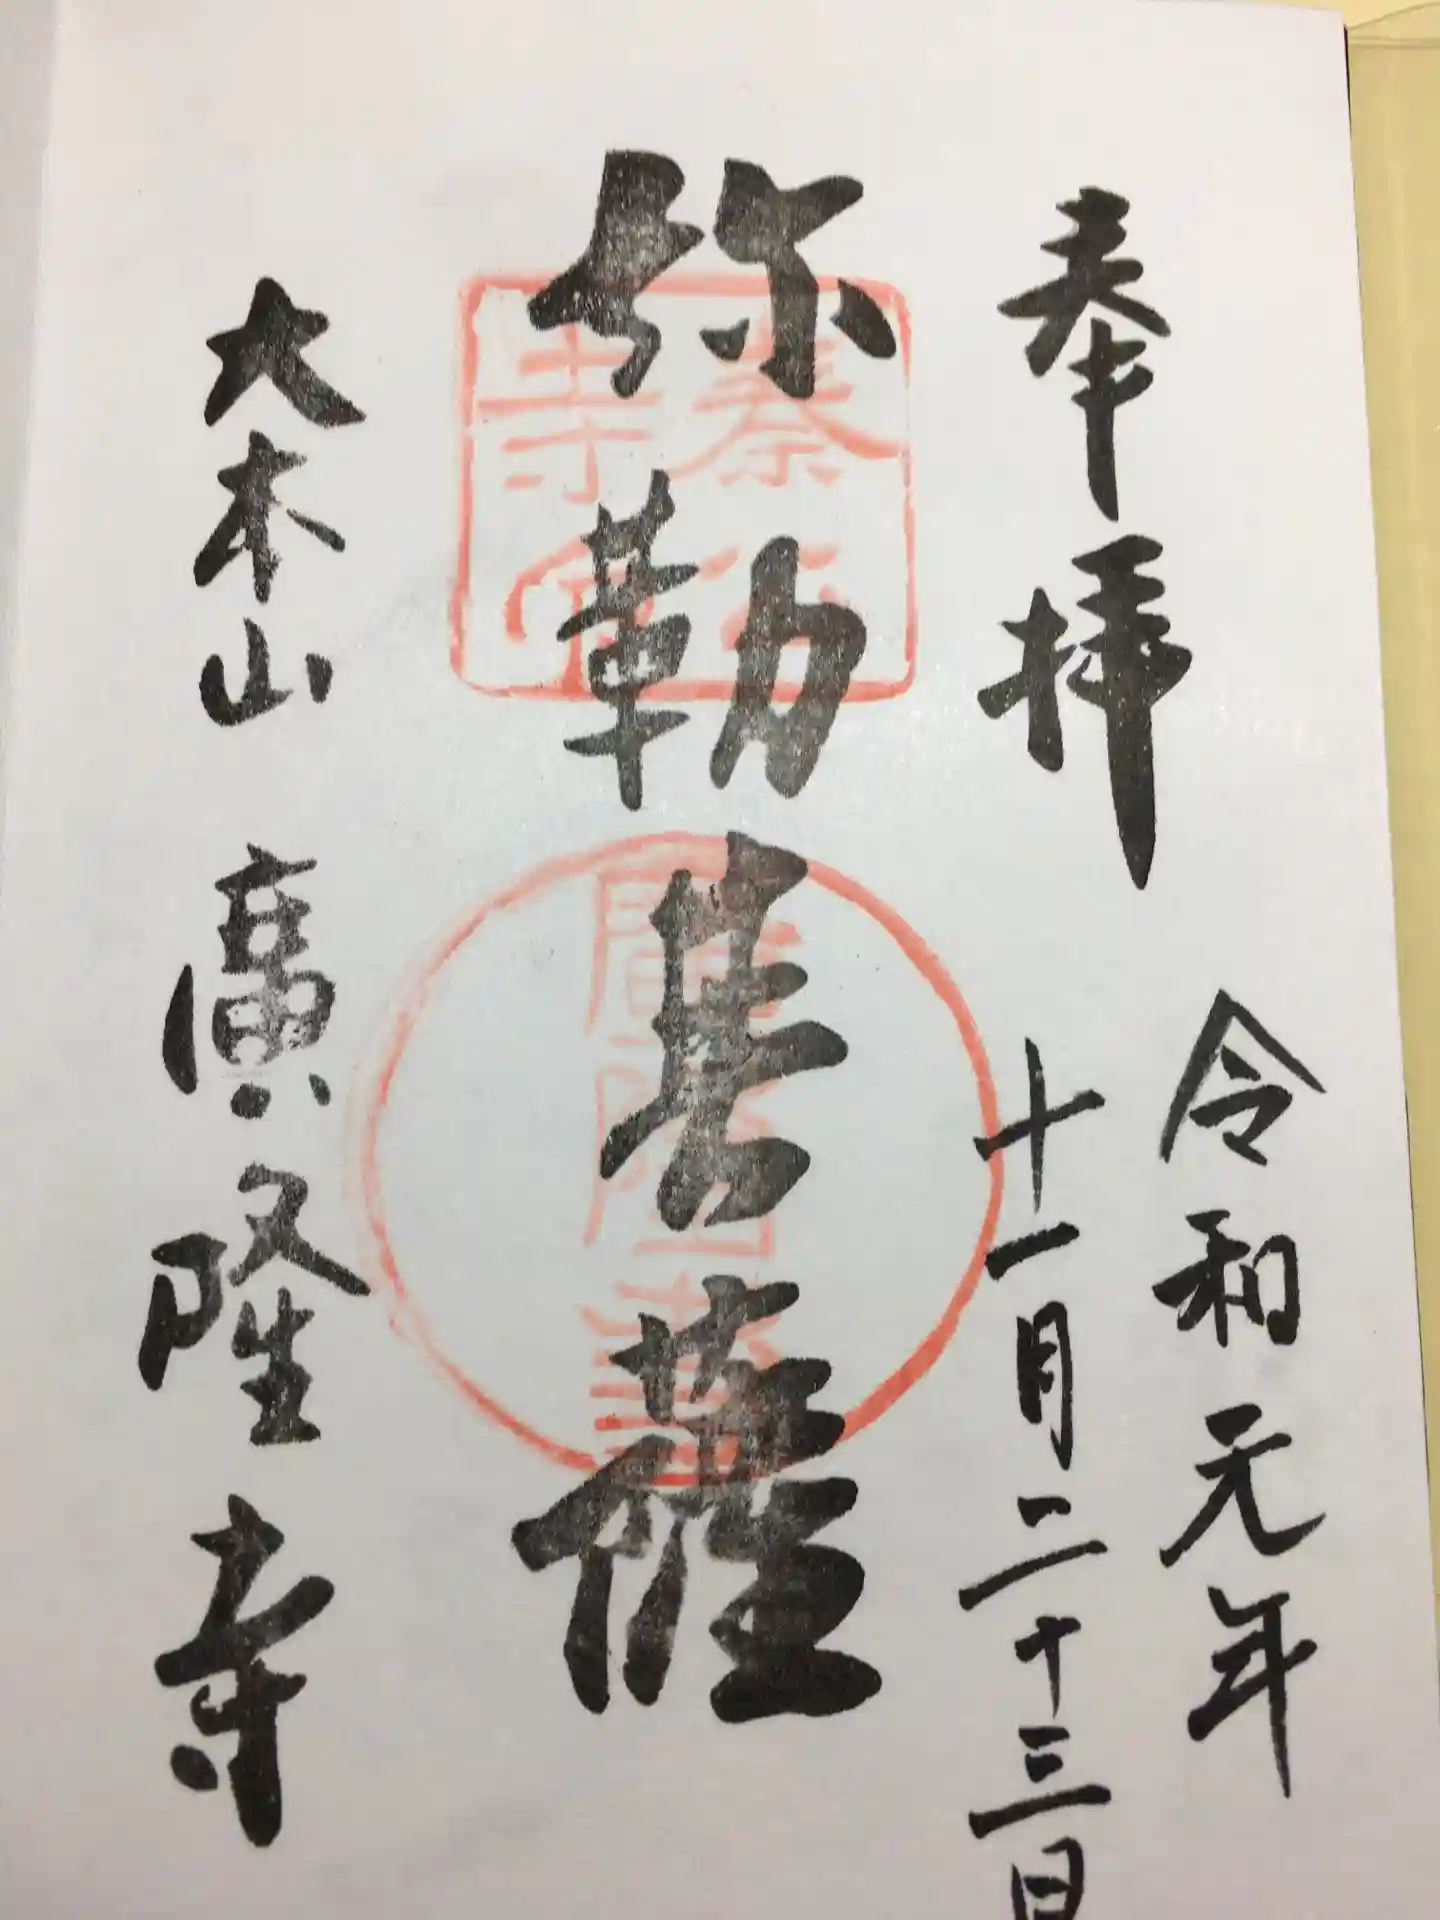 奉拝
令和元年
十一月二十三日
弥勒菩薩
大本山 廣隆寺
秦公
寺宝
廣隆寺